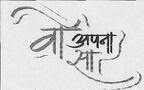 वो अपना
सा